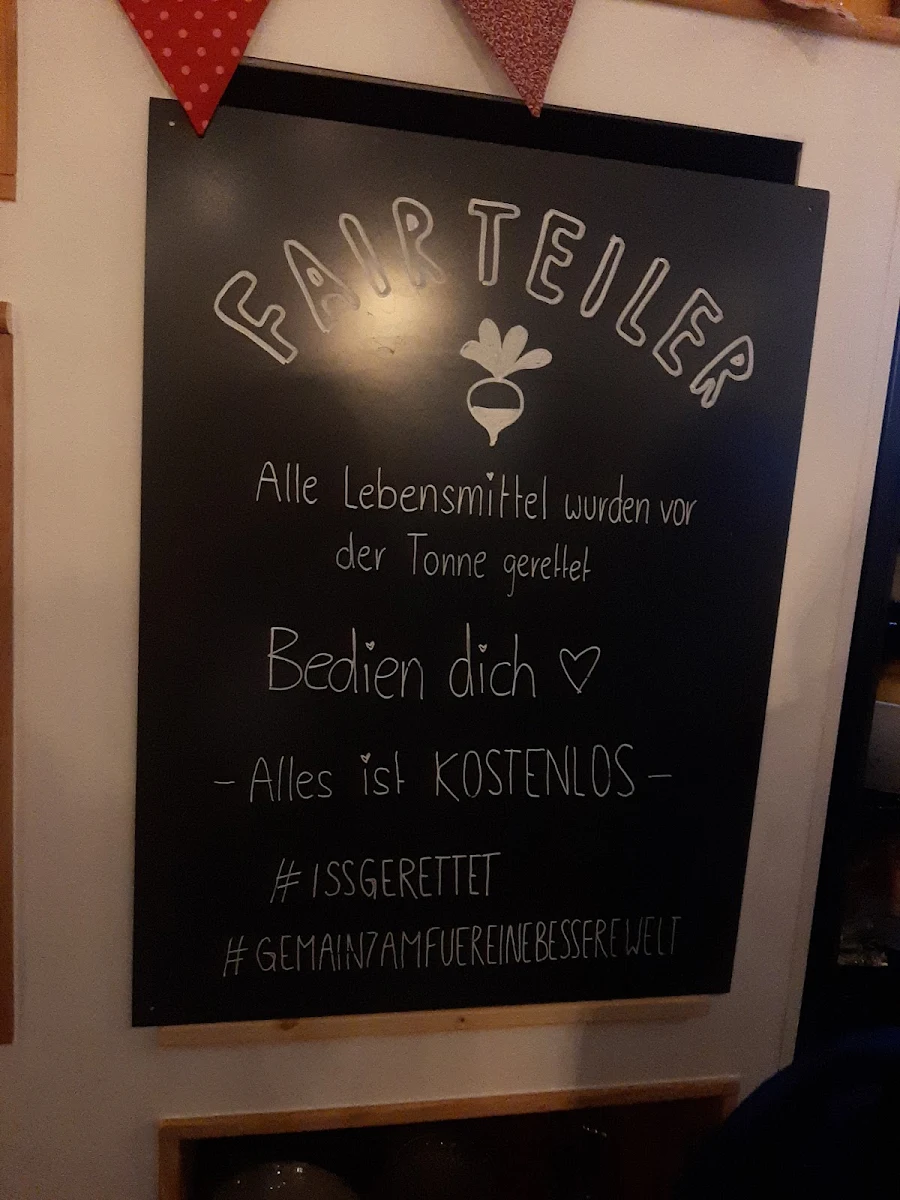 FAIRTEILER
Alle Lebensmittel wurden vor
der Tonne gerettet
Bedien dich ♡
- Alles ist KOSTENLOS -
#ISSGERETTET
#GEMAIN7AMFUEREINEBESSEREWELT